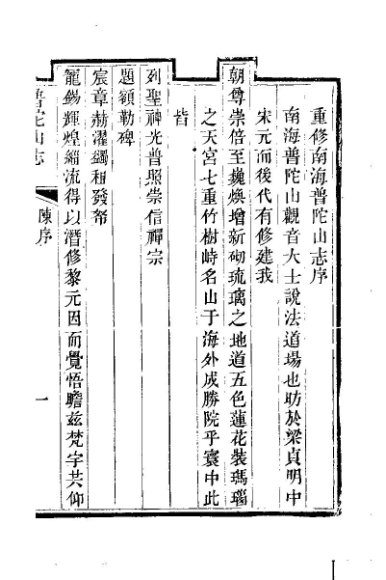 重修南海普陀山志序
南海普陀山觀音大士說法道場也昉於梁貞明中
宋元而後代有修建我
朝尊崇倍至擴煥增新砌琉璃之地道五色蓮花裝瑪瑙
之天宮七重竹樹峙名山于海外成勝院乎寰中此
皆
列聖神光普照崇信禪宗
題額勒碑
宸章赫濯蠲租發帑
寵錫輝煌緇流得以潛修黎元因而覺悟瞻茲梵字共仰
普陀山志
陳序
一